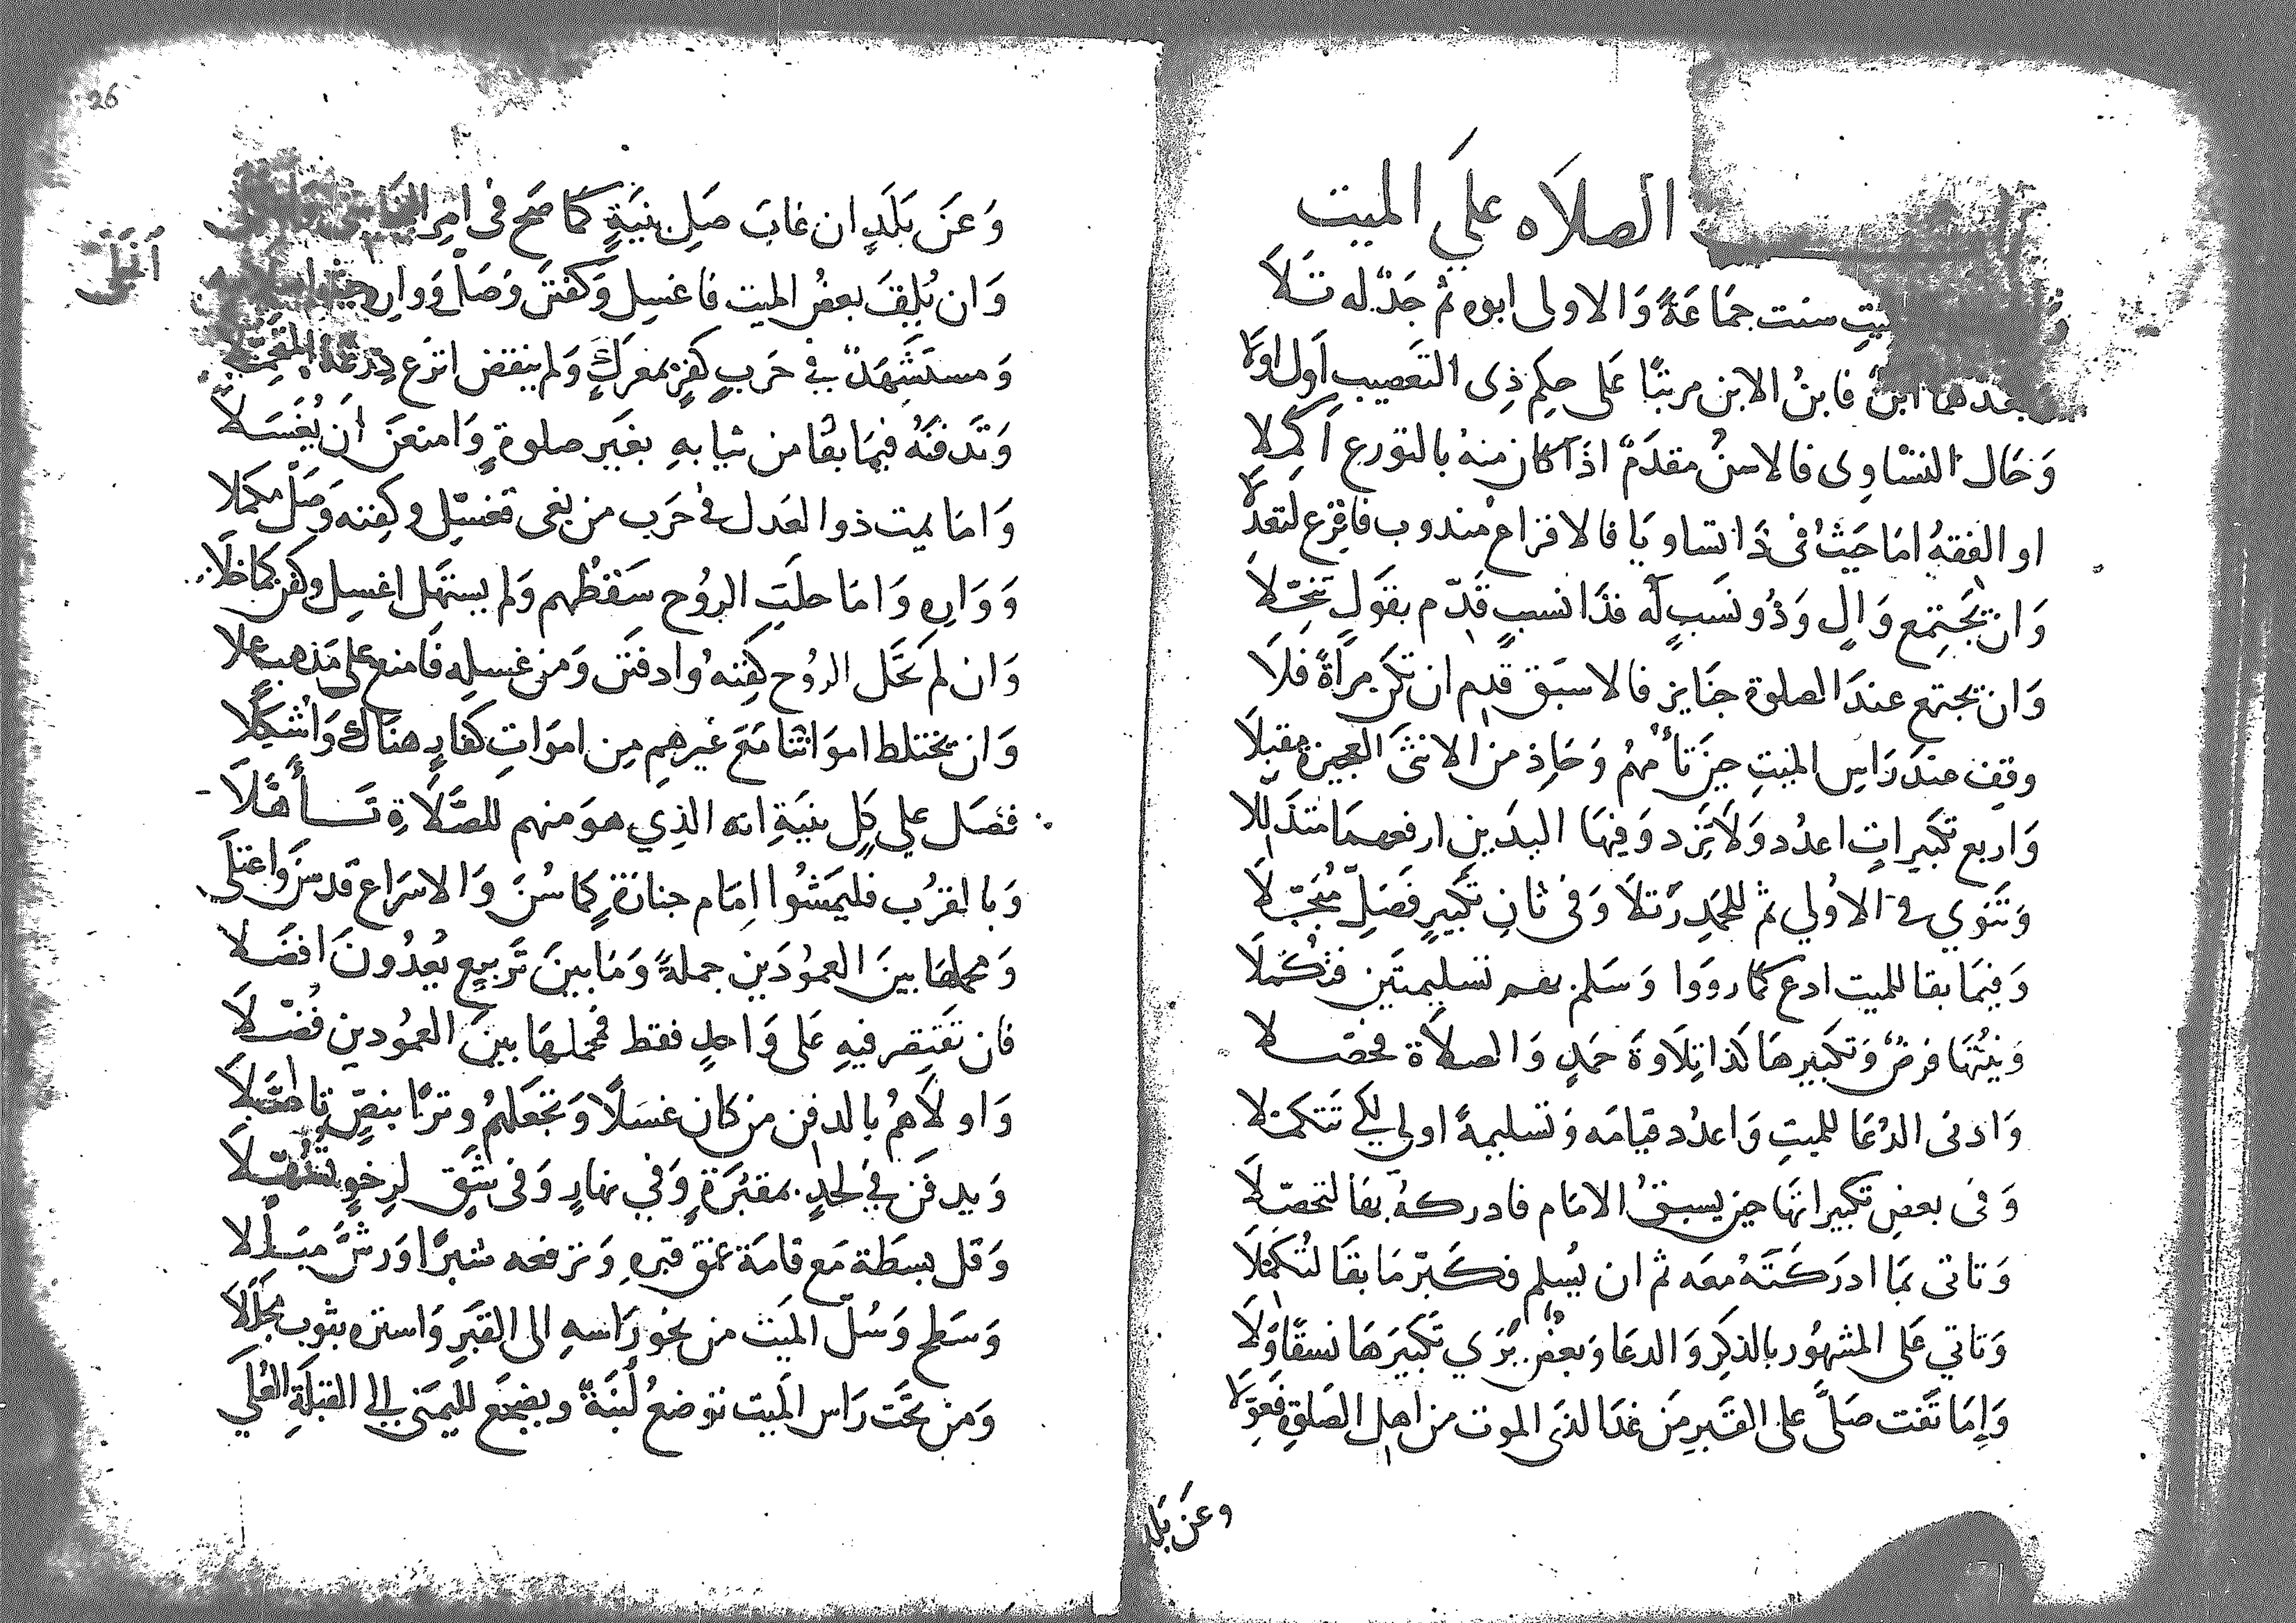 الصلاه على الميت
سنت جماعة والاولى ابوه ثم جد له تلا
بعدهما ابن فابن الابن مرتبا على حكم ذى التعصيب اول اولا
وحال التساوى فالاسن مقدم اذا كان منه بالتورع اكملا
او الفقه اما حيث فى ذا تساويا فالاقراع مندوب فاقرع لتعدلا
وان يجتمع وال وذو نسب له فذا نسب قدم بقول تنخلا
وان تجتمع عند الصلوة جنايز فالاسبق قدم ان تكن مرأة فلا
وقف عند راس الميت حين تأمهم وحاذ من الانثى العجيزة مقبلا
واربع تكبيرات اعدد ولا تزد وفيها اليدين ارفعهما متذللا
وتنوي في الاولي ثم للحمد رتلا وفى ثان تكبير فصل مبجلا
وفيما بقا للميت ادع كما رووا وسلم بعد تسليمتين فتكملا
ونيتها فرض وتكبيرها كذا تلاوة حمد والصلاة فحصلا
وادنى الدعا للميت واعدد قيامه وتسليمة اولي لكي تتكملا
وفى بعض تكبيراتها حين يسبق الامام فادركه بقا لتحصلا
وتاتى بما ادركته معه ثم ان يسلم فكبر ما بقا لتكملا
وتاتي على المشهور بالذكر والدعا وبعض يري تكبيرها نسقا ولا
وإما تفت صل على القبر من غدا لذى الموت من اهل الصلوة فعولا
وعن بلد
26
وعن بلد ان غاب صل بنية كما صح فى امر
وان يلف بعض الميت فاغسل وكفنن وصل ووار
ومستشهد فى حرب كفر بمعرك ولم ينقض انزع درعه
وتدفنه فيما بقا من ثيابه بغير صلوة وامنعن أن يغسلا
واما يمت ذوا لعدل فى حرب من بغى فغسل وكفنه وصل مكملا
وواره واما حلت الروح سقطهم ولم يستهل اغسل وكفن كما خلا
وان لم تحل الروح كفنه وادفنن ومن غسله فامنع على مذهب علا
وان تختلط امواتنا مع غيرهم من اموات كفار هناك واشكلا
فصل علي كل بنية انه الذي هو منهم للصلاة تأهلا
وبالقرب فليمشوا امام جنازة كما سن والاسراع قد سن واعتلى
ومحملها بين العمودين جملة وما بين تربيع يعدون افضلا
فان تقتصر فيه على واحد فقط فحملها بين العمودين فضلا
واولاهم بالدفن من كان غسلا وتجعلهم وترا بنص تاصلا
ويدفن في لحد بمقبرة وفي نهار وفى شق لرخو تسهلا
وقل بسطة مع قامة عمق قبره وترفعه شبرا ورش مبللا
وسطح وسل الميت من نحو راسه الى القبر واستره بثوب مجللا
ومن تحت راس الميت توضع لبنة ويضجع لليمنى الى القبلة العلي